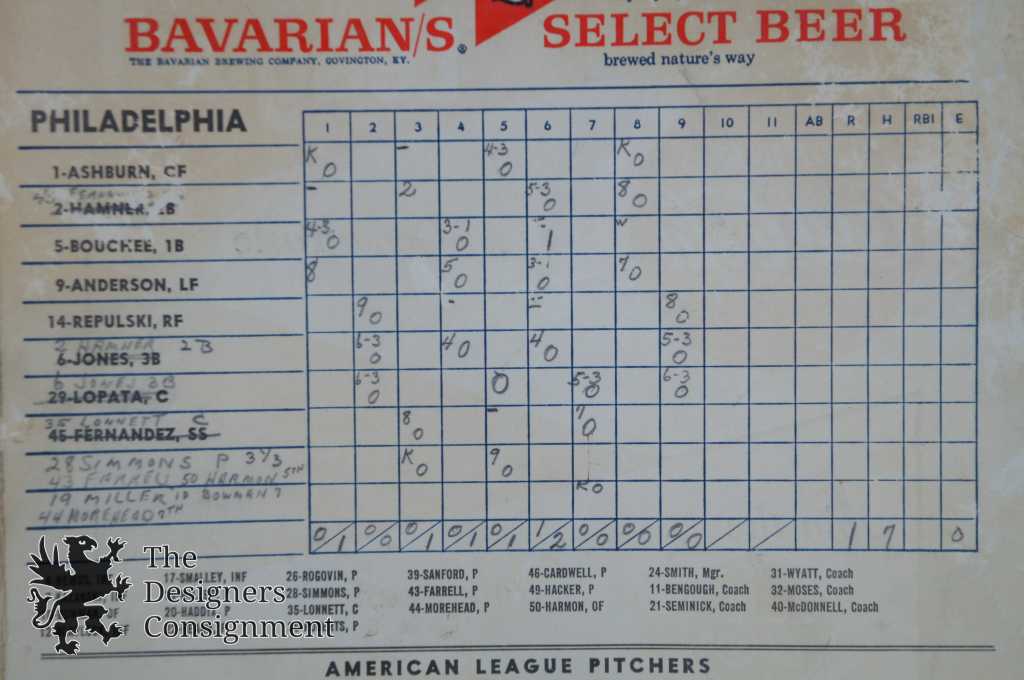 BAVARIAN/S® SELECT BEER
THE BAVARIAN BREWING COMPANY, COVINGTON, KY. brewed nature's way
PHILADELPHIA 1 2 3 4 5 6 7 8 9 10 11 AB R H RBI E
K - 4-3 K
1-ASHBURN, CF 0 0 0
- 2 5-3 8
2-HAMNER, 0 0
4-3 3-1 W
5-BOUCHEE, 1B 0 0 1
8 5 3-1 7
9-ANDERSON, LF 0 0 0
9 - 8
14-REPULSKI, RF 0 0
2 HAMNER 2B 6-3 4 0 4 0 5-3
6-JONES, 3B 0 0
6 JONES 3B 6-3 0 5-3 6-3
29-LOPATA, C 0 0 0
35 LONNETT C 8 - 7
45 FERNANDEZ, SS 0 0
28 SIMMONS P 3⅓ K 0 9 0
43 FARRELL 50 HARMON 5TH
19 MILLER 10 BOWMAN 7 K 0
44 MOREHEAD 7TH
0/1 0/0 0/1 0/1 0/1 1/2 0/0 0/0 0/0 / / 1 7 0
17-SMALLEY, INF 26-ROGOVIN, P 39-SANFORD, P 46-CARDWELL, P 24-SMITH, Mgr. 31-WYATT, Coach
28-SIMMONS, P 43-FARRELL, P 49-HACKER, P 11-BENGOUGH, Coach 32-MOSES, Coach
20-HADDIX, P 35-LONNETT, C 44-MOREHEAD, P 50-HARMON, OF 21-SEMINICK, Coach 40-McDONNELL, Coach
The
Designers
Consignment
AMERICAN LEAGUE PITCHERS